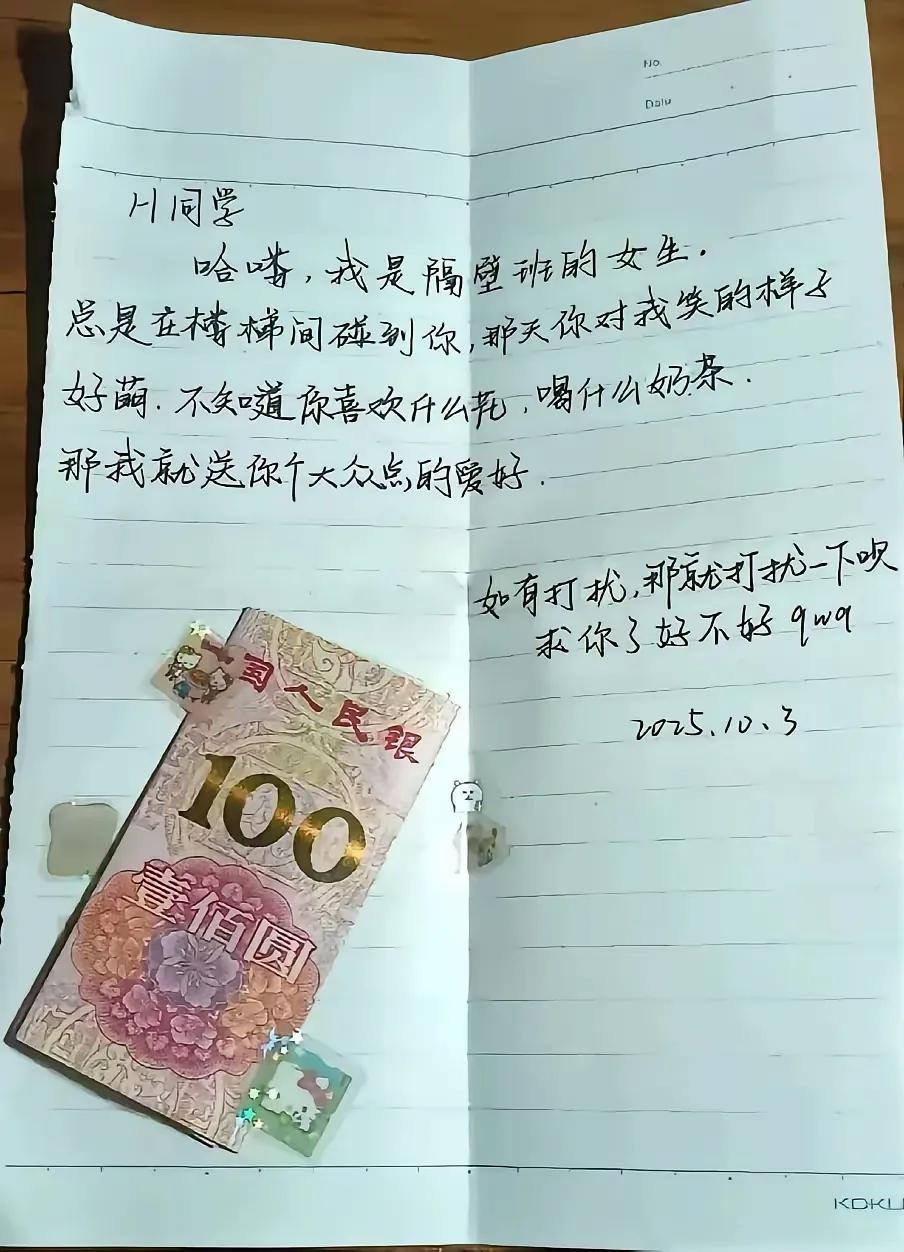 No.
Date
H同学
哈喽，我是隔壁班的女生.
总是在楼梯间碰到你,那天你对我笑的样子
好萌.不知道你喜欢什么花,喝什么奶茶.
那我就送你个大众点的爱好.
如有打扰,那就打扰一下呗
求你了好不好qwq
2025.10.3
国人民银
100
壹佰圆
KOKU